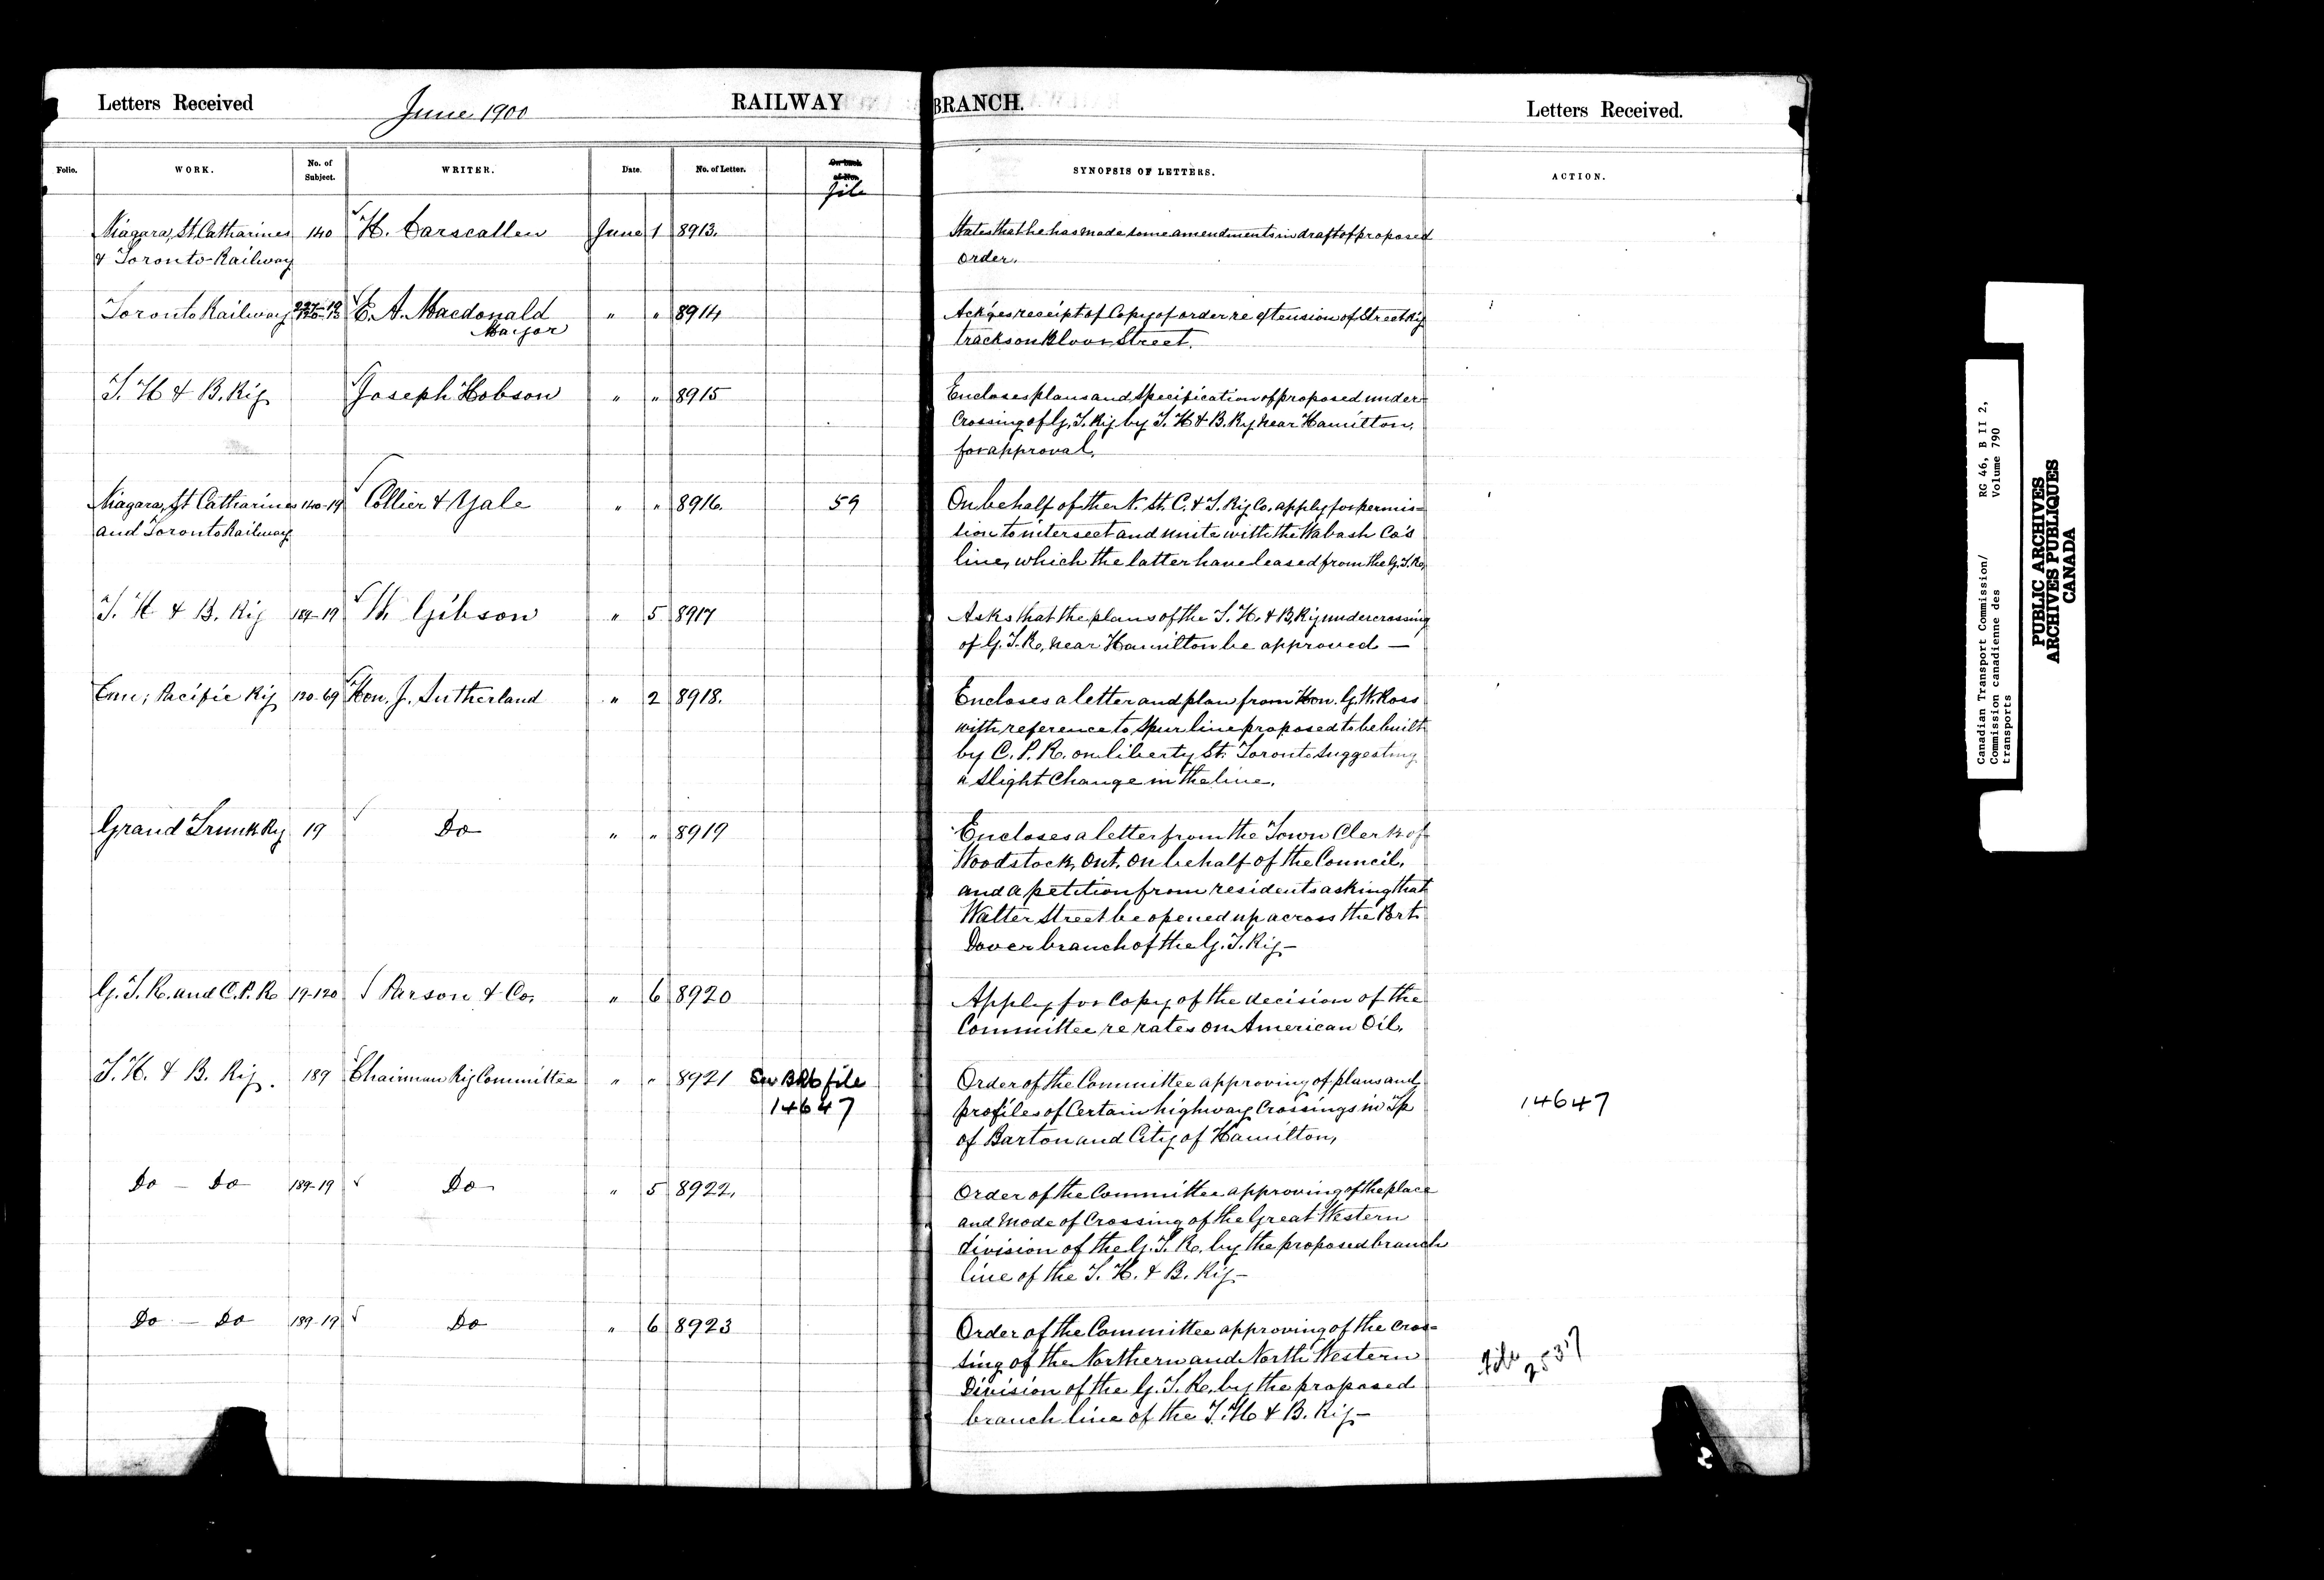 Letters Received
June 1900
RAILWAY BRANCH.
Letters Received.
Folio. WORK. No. of Subject. WRITER. Date. No. of Letter. file SYNOPSIS OF LETTERS. ACTION.
Niagara, St. Catharines 140 H. Carscallen June 1 8913. States that he has made some amendments in draft of proposed
& Toronto Railway order.
Toronto Railway E. A. Macdonald " " 8914 Ack'ges receipt of Copy of order re extension of Street Ry
Mayor tracks on Bloor Street.
T. H & B. Ry Joseph Hobson " " 8915 Encloses plans and specification of proposed under-
Crossing of G. T. Ry by T. H & B. Ry near Hamilton,
for approval.
Niagara, St Catharines 140-19 Collier & Yale " " 8916. 59 On behalf of the N. St. C. & T. Ry Co. apply for permis-
and Toronto Railway sion to intersect and unite with the Wabash Co's
line, which the latter have leased from the G. T. R.
T. H & B. Ry Gibson " 5 8917 Asks that the plans of the T. H. & B. Ry undercrossing
of G. T. R. near Hamilton be approved —
Can; Pacific Ry 120-69 Hon. J. Sutherland " 2 8918. Encloses a letter and plan from Hon. G. W. Ross
with reference to Spur line proposed to be built
by C. P. R. on Liberty St. Toronto suggesting
a slight Change in the line.
Grand Trunk Ry 19 Do " " 8919 Encloses a letter from the Town Clerk of
Woodstock, Ont. on behalf of the Council,
and a petition from residents asking that
Walter Street be opened up across the Port
Dover branch of the G. T. Ry —
G. T. R. and C. P. R 19-120 Parson & Co. " 6 8920 Apply for Copy of the decision of the
Committee re rates on American Oil.
T. H. & B. Ry. 189 Chairman Ry Committee " " 8921 See file Order of the Committee approving of plans and
14647 profiles of Certain highway Crossings in Tp 14647
of Barton and City of Hamilton,
Do — Do 189-19 Do " 5 8922, Order of the Committee approving of the place
and mode of Crossing of the Great Western
division of the G. T. R. by the proposed branch
line of the T. H. & B. Ry —
Do — Do 189-19 Do " 6 8923 Order of the Committee approving of the cros-
sing of the Northern and North Western File 2537
Division of the G. T. R. by the proposed
branch line of the T. H & B. Ry —
Canadian Transport Commission/ RG 46, B II 2,
Commission canadienne des Volume 790
transports
PUBLIC ARCHIVES
ARCHIVES PUBLIQUES
CANADA